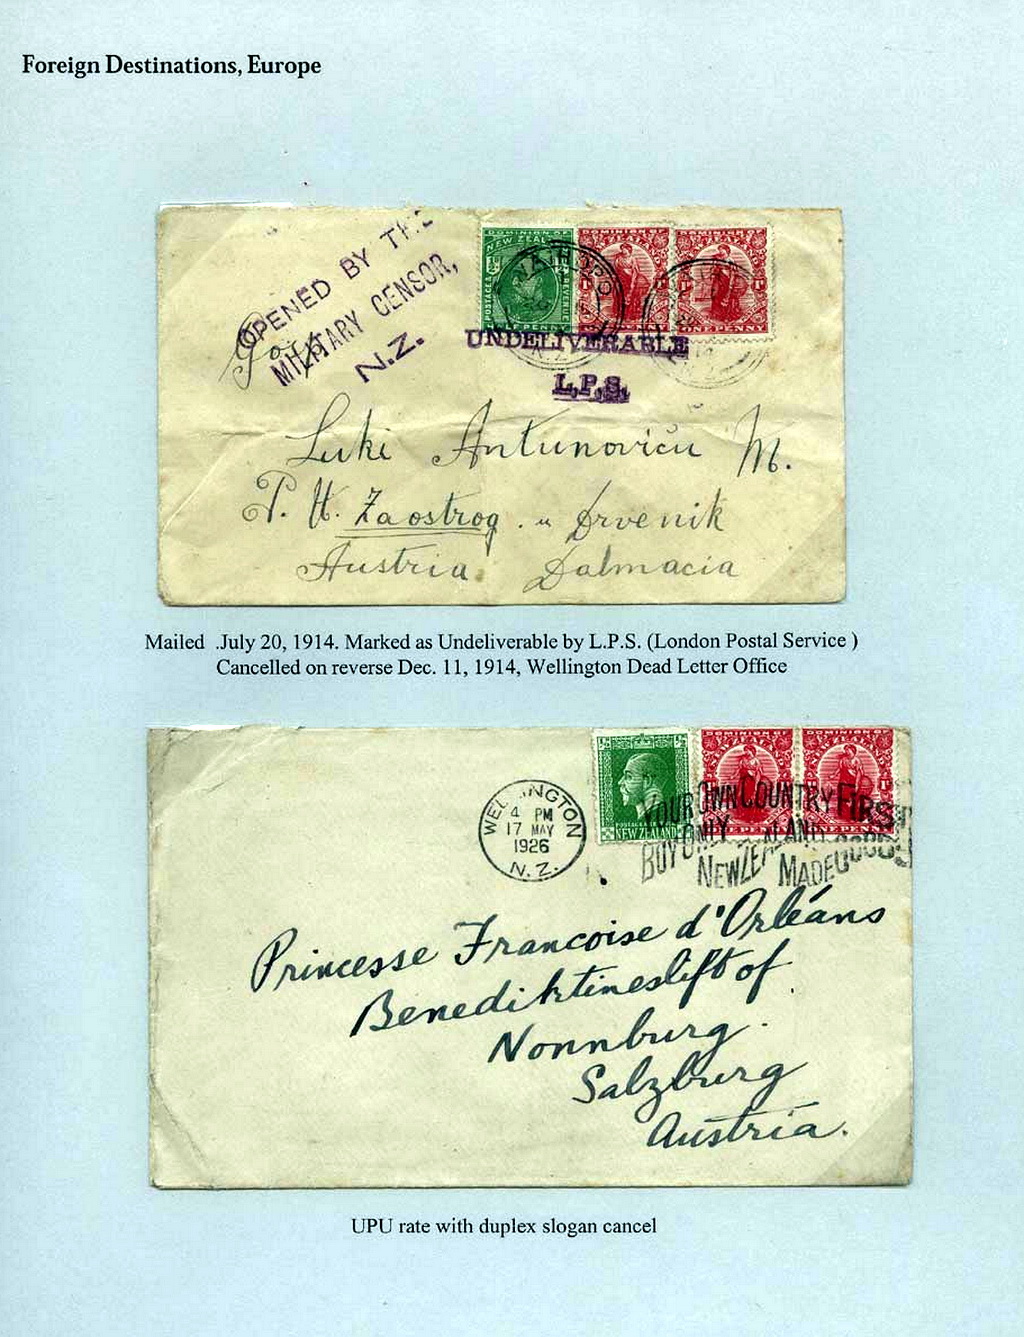 Foreign Destinations, Europe
OPENED BY THE
MILITARY CENSOR,
N.Z.
DOMINION OF
NEW ZEALAND
POSTAGE & REVENUE
HALF PENNY
ONE PENNY
WAIHOPO
N.Z.
UNDELIVERABLE
L.P.S.
Luki Antunoviću M.
P. U. Zaostrog. u Drvenik
Austria Dalmacia
Mailed .July 20, 1914. Marked as Undeliverable by L.P.S. (London Postal Service )
Cancelled on reverse Dec. 11, 1914, Wellington Dead Letter Office
WELLINGTON
4 PM
17 MAY
1926
N.Z.
NEW ZEALAND
YOUR OWN COUNTRY FIRST
BUY ONLY
NEW ZEALAND
MADE GOODS
Princesse Francoise d'Orléans
Benediktineslift of
Nonnburg.
Salzburg
Austria.
UPU rate with duplex slogan cancel